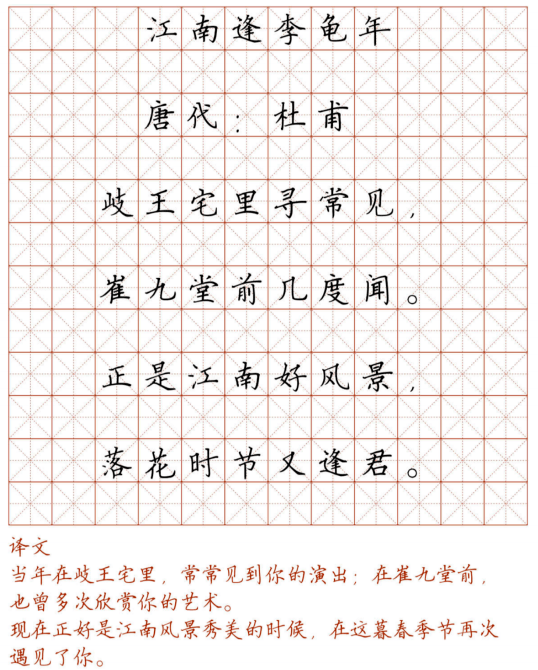 江南逢李龟年
唐代：杜甫
歧王宅里寻常见，
崔九堂前几度闻。
正是江南好风景，
落花时节又逢君。
译文
当年在歧王宅里，常常见到你的演出；在崔九堂前，
也曾多次欣赏你的艺术。
现在正好是江南风景秀美的时候，在这暮春季节再次
遇见了你。